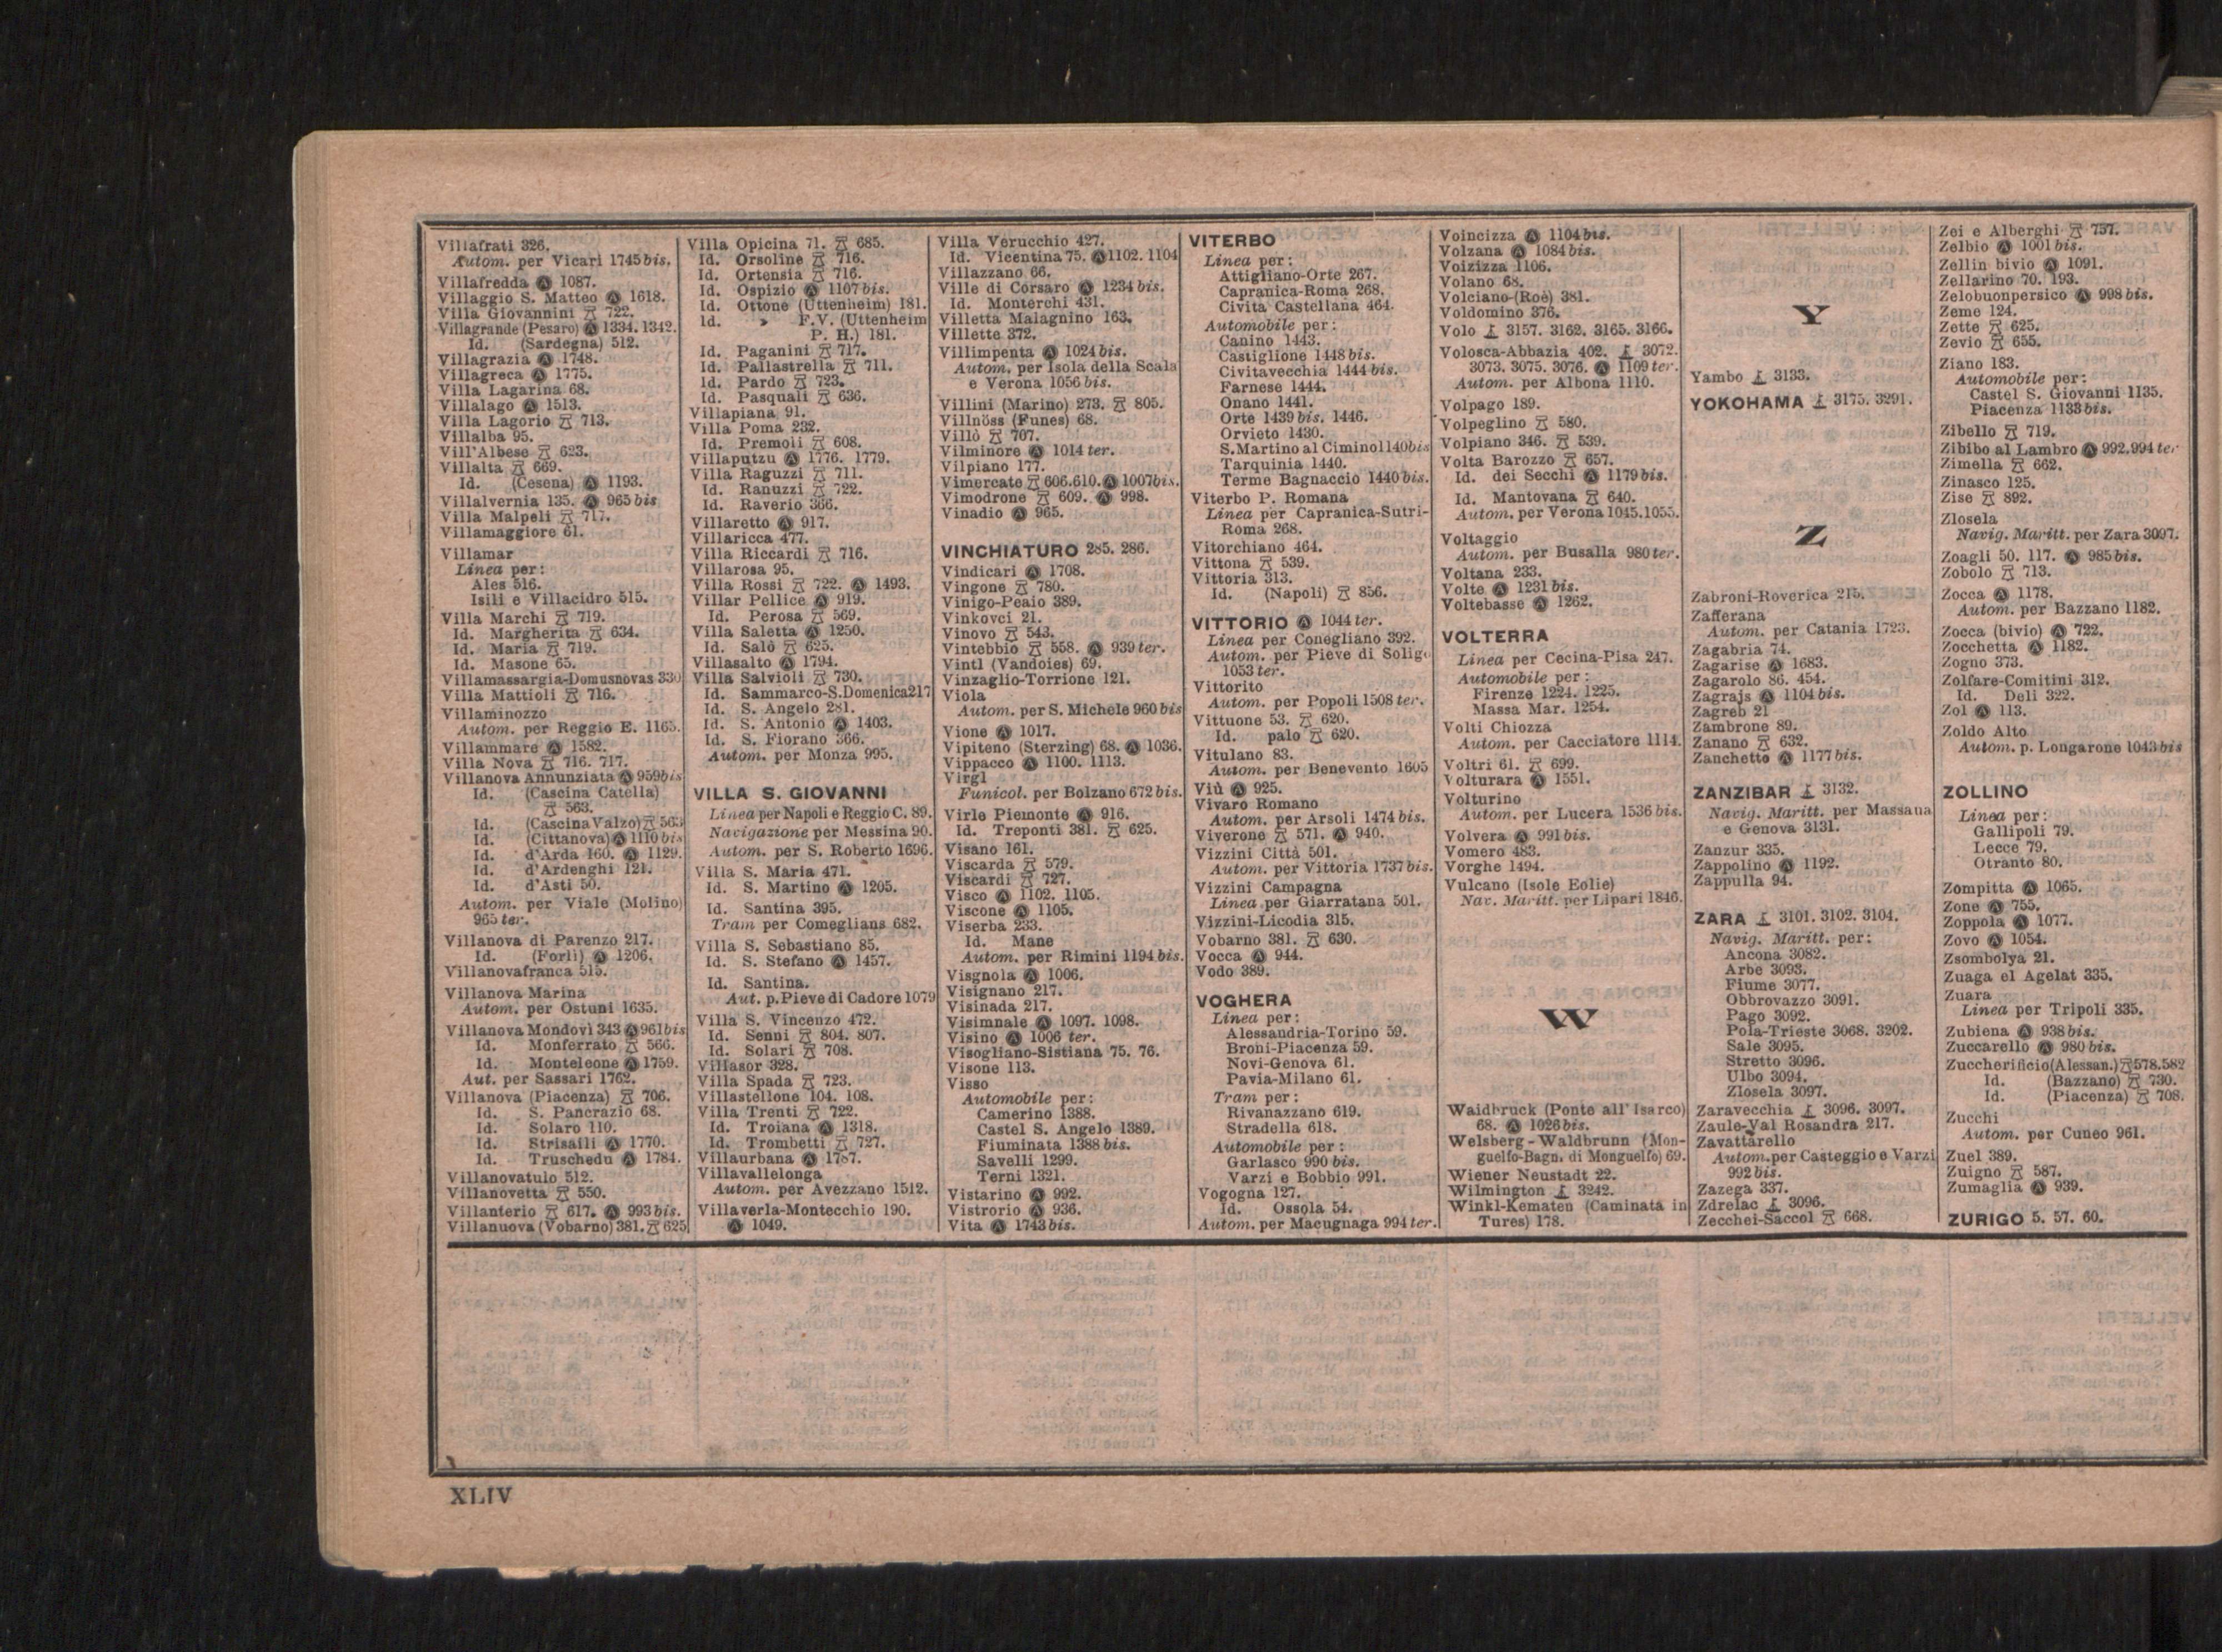 Villafrati 326.
Autom. per Vicari 1745 bis.
Villafredda Ⓐ 1087.
Villaggio S. Matteo Ⓐ 1618.
Villa Giovannini 722.
Villagrande (Pesaro) Ⓐ 1334. 1342.
Id. (Sardegna) 512.
Villagrazia Ⓐ 1748.
Villagreca Ⓐ 1775.
Villa Lagarina 68.
Villalago Ⓐ 1513.
Villa Lagorio 713.
Villalba 95.
Vill'Albese 623.
Villalta 669.
Id. (Cesena) Ⓐ 1193.
Villalvernia 135. Ⓐ 965 bis
Villa Malpeli 717.
Villamaggiore 61.
Villamar
Linea per:
Ales 516.
Isili e Villacidro 515.
Villa Marchi 719.
Id. Margherita 634.
Id. Maria 719.
Id. Masone 65.
Villamassargia-Domusnovas 330
Villa Mattioli 716.
Villaminozzo
Autom. per Reggio E. 1165.
Villammare Ⓐ 1582.
Villa Nova 716. 717.
Villanova Annunziata Ⓐ 959 bis
Id. (Cascina Catella)
563.
Id. (Cascina Valzo) 563
Id. (Cittanova) Ⓐ 1110 bis
Id. d'Arda 160. Ⓐ 1129.
Id. d'Ardenghi 121.
Id. d'Asti 50.
Autom. per Viale (Molino)
965 ter.
Villanova di Parenzo 217.
Id. (Forlì) Ⓐ 1206.
Villanovafranca 515.
Villanova Marina
Autom. per Ostuni 1635.
Villanova Mondovì 343 Ⓐ 961 bis
Id. Monferrato 566.
Id. Monteleone Ⓐ 1759.
Aut. per Sassari 1762.
Villanova (Piacenza) 706.
Id. S. Pancrazio 68.
Id. Solaro 110.
Id. Strisaili Ⓐ 1770.
Id. Truschedu Ⓐ 1784.
Villanovatulo 512.
Villanovetta 550.
Villanterio 617. Ⓐ 993 bis.
Villanuova (Vobarno) 381. 625
Villa Opicina 71. 685.
Id. Orsoline 716.
Id. Ortensia 716.
Id. Ospizio Ⓐ 1107 bis.
Id. Ottone (Uttenheim) 181.
Id. » F.V. (Uttenheim
P. H.) 181.
Id. Paganini 717.
Id. Pallastrella 711.
Id. Pardo 723.
Id. Pasquali 636.
Villapiana 91.
Villa Poma 232.
Id. Premoli 608.
Villaputzu Ⓐ 1776. 1779.
Villa Raguzzi 711.
Id. Ranuzzi 722.
Id. Raverio 366.
Villaretto Ⓐ 917.
Villaricca 477.
Villa Riccardi 716.
Villarosa 95.
Villa Rossi 722. Ⓐ 1493.
Villar Pellice Ⓐ 919.
Id. Perosa 569.
Villa Saletta Ⓐ 1250.
Id. Salò 625.
Villasalto Ⓐ 1794.
Villa Salvioli 730.
Id. Sammarco-S.Domenica 217
Id. S. Angelo 281.
Id. S. Antonio Ⓐ 1403.
Id. S. Fiorano 366.
Autom. per Monza 995.
VILLA S. GIOVANNI
Linea per Napoli e Reggio C. 89.
Navigazione per Messina 90.
Autom. per S. Roberto 1696.
Villa S. Maria 471.
Id. S. Martino Ⓐ 1205.
Id. Santina 395.
Tram per Comeglians 682.
Villa S. Sebastiano 85.
Id. S. Stefano Ⓐ 1457.
Id. Santina.
Aut. p. Pieve di Cadore 1079
Villa S. Vincenzo 472.
Id. Senni 804. 807.
Id. Solari 708.
Villasor 328.
Villa Spada 723.
Villastellone 104. 108.
Villa Trenti 722.
Id. Troiana Ⓐ 1318.
Id. Trombetti 727.
Villaurbana Ⓐ 1787.
Villavallelonga
Autom. per Avezzano 1512.
Villaverla-Montecchio 190.
Ⓐ 1049.
Villa Verucchio 427.
Id. Vicentina 75. Ⓐ 1102. 1104
Villazzano 66.
Ville di Corsaro Ⓐ 1234 bis.
Id. Monterchi 431.
Villetta Malagnino 163.
Villette 372.
Villimpenta Ⓐ 1024 bis.
Autom. per Isola della Scala
e Verona 1056 bis.
Villini (Marino) 273. 805.
Villnöss (Funes) 68.
Villò 707.
Vilminore Ⓐ 1014 ter.
Vilpiano 177.
Vimercate 606.610. Ⓐ 1007 bis.
Vimodrone 609. Ⓐ 998.
Vinadio Ⓐ 965.
VINCHIATURO 285. 286.
Vindicari Ⓐ 1708.
Vingone 780.
Vinigo-Peaio 389.
Vinkovci 21.
Vinovo 543.
Vintebbio 558. Ⓐ 939 ter.
Vintl (Vandoies) 69.
Vinzaglio-Torrione 121.
Viola
Autom. per S. Michele 960 bis
Vione Ⓐ 1017.
Vipiteno (Sterzing) 68. Ⓐ 1036.
Vippacco Ⓐ 1100. 1113.
Virgl
Funicol. per Bolzano 672 bis.
Virle Piemonte Ⓐ 916.
Id. Treponti 381. 625.
Visano 161.
Viscarda 579.
Viscardi 727.
Visco Ⓐ 1102. 1105.
Viscone Ⓐ 1105.
Viserba 233.
Id. Mane
Autom. per Rimini 1194 bis.
Visgnola Ⓐ 1006.
Visignano 217.
Visinada 217.
Visimnale Ⓐ 1097. 1098.
Visino Ⓐ 1006 ter.
Visogliano-Sistiana 75. 76.
Visone 113.
Visso
Automobile per:
Camerino 1388.
Castel S. Angelo 1389.
Fiuminata 1388 bis.
Savelli 1299.
Terni 1321.
Vistarino Ⓐ 992.
Vistrorio Ⓐ 936.
Vita Ⓐ 1743 bis.
VITERBO
Linea per:
Attigliano-Orte 267.
Capranica-Roma 268.
Civita Castellana 464.
Automobile per:
Canino 1443.
Castiglione 1448 bis.
Civitavecchia 1444 bis.
Farnese 1444.
Onano 1441.
Orte 1439 bis. 1446.
Orvieto 1430.
S. Martino al Cimino 1140 bis
Tarquinia 1440.
Terme Bagnaccio 1440 bis.
Viterbo P. Romana
Linea per Capranica-Sutri-
Roma 268.
Vitorchiano 464.
Vittona 539.
Vittoria 313.
Id. (Napoli) 856.
VITTORIO Ⓐ 1044 ter.
Linea per Conegliano 392.
Autom. per Pieve di Soligo
1053 ter.
Vittorito
Autom. per Popoli 1508 ter.
Vittuone 53. 620.
Id. palo 620.
Vitulano 83.
Autom. per Benevento 1605
Viù Ⓐ 925.
Vivaro Romano
Autom. per Arsoli 1474 bis.
Viverone 571. Ⓐ 940.
Vizzini Città 501.
Autom. per Vittoria 1737 bis.
Vizzini Campagna
Linea per Giarratana 501.
Vizzini-Licodia 315.
Vobarno 381. 630.
Vocca Ⓐ 944.
Vodo 389.
VOGHERA
Linea per:
Alessandria-Torino 59.
Broni-Piacenza 59.
Novi-Genova 61.
Pavia-Milano 61.
Tram per:
Rivanazzano 619.
Stradella 618.
Automobile per:
Garlasco 990 bis.
Varzi e Bobbio 991.
Vogogna 127.
Id. Ossola 54.
Autom. per Macugnaga 994 ter.
Voincizza Ⓐ 1104 bis.
Volzana Ⓐ 1084 bis.
Voizizza 1106.
Volano 68.
Volciano-(Roè) 381.
Voldomino 376.
Volo 3157. 3162. 3165. 3166.
Volosca-Abbazia 402. 3072.
3073. 3075. 3076. Ⓐ 1109 ter.
Autom. per Albona 1110.
Volpago 189.
Volpeglino 580.
Volpiano 346. 539.
Volta Barozzo 657.
Id. dei Secchi Ⓐ 1179 bis.
Id. Mantovana 640.
Autom. per Verona 1045.1055.
Voltaggio
Autom. per Busalla 980 ter.
Voltana 233.
Volte Ⓐ 1231 bis.
Voltebasse Ⓐ 1262.
VOLTERRA
Linea per Cecina-Pisa 247.
Automobile per:
Firenze 1224. 1225.
Massa Mar. 1254.
Volti Chiozza
Autom. per Cacciatore 1114.
Voltri 61. 699.
Volturara Ⓐ 1551.
Volturino
Autom. per Lucera 1536 bis.
Volvera Ⓐ 991 bis.
Vomero 483.
Vorghe 1494.
Vulcano (Isole Eolie)
Nav. Maritt. per Lipari 1846.
W
Waidbruck (Ponte all' Isarco)
68. Ⓐ 1026 bis.
Welsberg-Waldbrunn (Mon-
guelfo-Bagn. di Monguelfo) 69.
Wiener Neustadt 22.
Wilmington 3242.
Winkl-Kematen (Caminata in
Tures) 178.
Y
Yambo 3133.
YOKOHAMA 3175. 3291.
Z
Zabroni-Roverica 215.
Zafferana
Autom. per Catania 1723.
Zagabria 74.
Zagarise Ⓐ 1683.
Zagarolo 86. 454.
Zagrajs Ⓐ 1104 bis.
Zagreb 21
Zambrone 89.
Zanano 632.
Zanchetto Ⓐ 1177 bis.
ZANZIBAR 3132.
Navig. Maritt. per Massaua
e Genova 3131.
Zanzur 335.
Zappolino Ⓐ 1192.
Zappulla 94.
ZARA 3101. 3102. 3104.
Navig. Maritt. per:
Ancona 3082.
Arbe 3093.
Fiume 3077.
Obbrovazzo 3091.
Pago 3092.
Pola-Trieste 3068. 3202.
Sale 3095.
Stretto 3096.
Ulbo 3094.
Zlosela 3097.
Zaravecchia 3096. 3097.
Zaule-Val Rosandra 217.
Zavattarello
Autom. per Casteggio e Varzi
992 bis.
Zazega 337.
Zdrelac 3096.
Zecchei-Saccol 668.
Zei e Alberghi 757.
Zelbio Ⓐ 1001 bis.
Zellin bivio Ⓐ 1091.
Zellarino 70. 193.
Zelobuonpersico Ⓐ 998 bis.
Zeme 124.
Zette 625.
Zevio 655.
Ziano 183.
Automobile per:
Castel S. Giovanni 1135.
Piacenza 1133 bis.
Zibello 719.
Zibibo al Lambro Ⓐ 992.994 ter
Zimella 662.
Zinasco 125.
Zise 892.
Zlosela
Navig. Maritt. per Zara 3097.
Zoagli 50. 117. Ⓐ 985 bis.
Zobolo 713.
Zocca Ⓐ 1178.
Autom. per Bazzano 1182.
Zocca (bivio) Ⓐ 722.
Zocchetta Ⓐ 1182.
Zogno 373.
Zolfare-Comitini 312.
Id. Deli 322.
Zol Ⓐ 113.
Zoldo Alto
Autom. p. Longarone 1043 bis
ZOLLINO
Linea per:
Gallipoli 79.
Lecce 79.
Otranto 80.
Zompitta Ⓐ 1065.
Zone Ⓐ 755.
Zoppola Ⓐ 1077.
Zovo Ⓐ 1054.
Zsombolya 21.
Zuaga el Agelat 335.
Zuara
Linea per Tripoli 335.
Zubiena Ⓐ 938 bis.
Zuccarello Ⓐ 980 bis.
Zuccherificio (Alessan.) 578.582
Id. (Bazzano) 730.
Id. (Piacenza) 708.
Zucchi
Autom. per Cuneo 961.
Zuel 389.
Zuigno 587.
Zumaglia Ⓐ 939.
ZURIGO 5. 57. 60.
XLIV